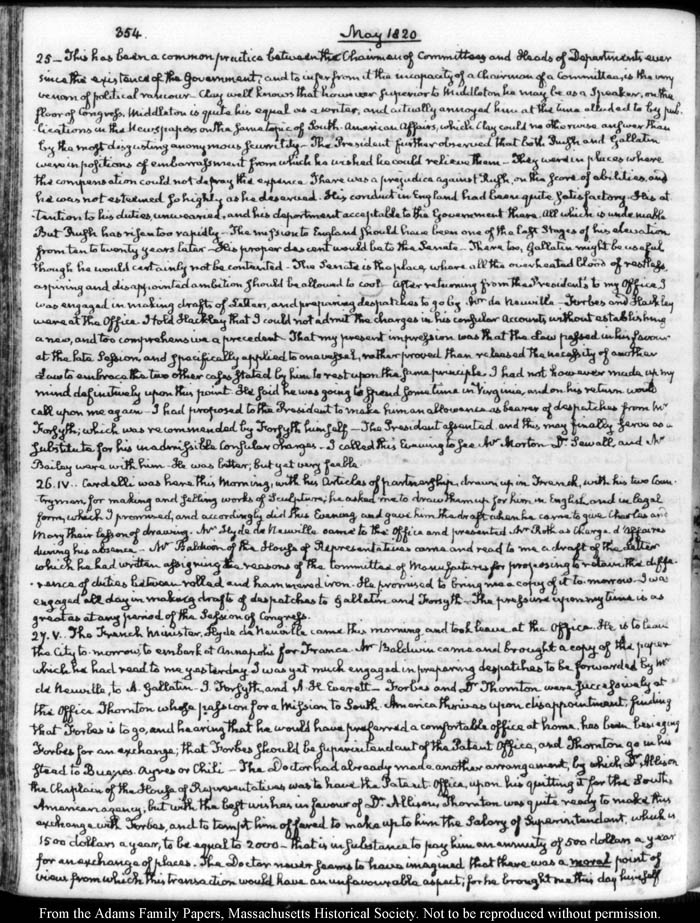 354.
May 1820
25 – This has been a common practice between the Chairmen of Committees and Heads of Departments ever
since the existence of the Government; and to infer from it the incapacity of a Chairman of a Committee, is the very
venom of political rancour – Clay well knows that however superior to Middleton he may be as a Speaker, on the
floor of Congress, Middleton is quite his equal as a writer, and actually annoyed him at the time alluded to by pub-
lications in the Newspapers on the same topic of South-American affairs, which Clay could no otherwise answer than
by the most disgusting anonymous scurrility – The President further observed that both Rush and Gallatin
were in positions of embarrassment from which he wished he could relieve them – They were in places where
the compensation could not defray the expence. There was a prejudice against Rush, on the score of abilities, and
he was not esteemed so highly as he deserved. His conduct in England had been quite satisfactory. His at-
tention to his duties, unwearied, and his deportment acceptable to the Government there. All which is undeniable
But Rush has risen too rapidly – The mission to England should have been one of the last stages of his elevation
from ten to twenty years later – His proper descent would be to the Senate – There too, Gallatin might be useful
though he would certainly not be contented – The Senate is the place, where all the overheated blood of restless,
aspiring and disappointed ambition should be allowed to cool. After returning from the President's to my Office, I
was engaged in making drafts of Letters, and preparing despatches to go by Mr de Neuville – Forbes and Hackley
were at the Office. I told Hackley that I could not admit the charges in his consular Accounts, without establishing
a new, and too comprehensive a precedent. That my present impression was that the Law passed in his favour
at the late Session, and specifically applied to one vessel, rather proved than released the necessity of another
Law to embrace the two other cases stated by him to rest upon the same principle. I had not however made up my
mind definitively upon this point. He said he was going to spend some time in Virginia, and on his return would
call upon me again – I had proposed to the President to make him an allowance as bearer of despatches from Mr
Forsyth; which was recommended by Forsyth himself – The President assented, and this may finally serve as a
substitute for his inadmissible Consular charges – I called this Evening to see Mr Morton – Dr Sewall, and Mr
Bailey were with him – He was better, but yet very feeble.
26. IV.. Cardelli was here this Morning, with his Articles of partnership, drawn up in French, with his two Coun-
trymen for making and selling works of Sculpture; he asked me to draw them up for him in English, and in legal
form, which I promised, and accordingly did this Evening and gave him the draft when he came to give Charles and
Mary their lesson of drawing. Mr Hyde de Neuville came to the Office and presented Mr Roth as Chargé d'Affaires
during his absence – Mr Baldwin of the House of Representatives came and read to me a draft of the Letter
which he had written assigning the reasons of the Committee of Manufactures for proposing to retain the diffe-
rence of duties between rolled and hammered iron. He promised to bring me a copy of it to-morrow – I was
engaged all day in making drafts of despatches to Gallatin and Forsyth – The pressure upon my time is as
great as at any period of the Session of Congress.
27. V. The French Minister, Hyde de Neuville came this morning and took leave at the Office. He is to leave
the City to-morrow, to embark at Annapolis for France. Mr Baldwin came and brought a copy of the paper
which he had read to me yesterday. I was yet much engaged in preparing despatches to be forwarded by Mr
de Neuville, to A. Gallatin – J. Forsyth, and A. H. Everett – Forbes and Dr Thornton were successively at
the Office. Thornton whose passion for a Mission to South-America thrives upon disappointment, finding
that Forbes is to go, and hearing that he would have preferred a comfortable office at home, has been besieging
Forbes for an exchange; that Forbes should be Superintendant of the Patent Office, and Thornton go in his
stead to Buenos-Ayres or Chili – The Doctor had already made another arrangement, by which Dr Allison
the Chaplain of the House of Representatives was to have the Patent Office, upon his quitting it for the South-
American agency, but with the best wishes in favour of Dr Allison, Thornton was quite ready to make this
exchange with Forbes, and to tempt him offered to make up to him the Salary of Superintendant, which is
1500 dollars a year, to be equal to 2000 – that is in substance to pay him an annuity of 500 dollars a year
for an exchange of places. The Doctor never seems to have imagined that there was a moral point of
view from which this transaction would have an unfavourable aspect; for he brought me this day himself
From the Adams Family Papers, Massachusetts Historical Society. Not to be reproduced without permission.